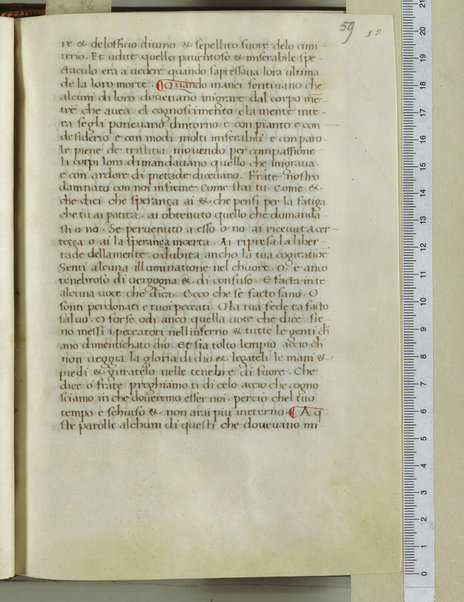 59
59
re & delofficio diuino & sepellito fuore delo cimi
terio. Et udite quello pauentoso & miserabile spe
ctaculo era a uedere quando sapressaua lora ultima
de la loro morte. Quando manci sentiuano che
alcuni di loro doueuano migrare dal corpo me
tre che auea el cognoscimento e la mente inte
ra se gla poneuano dintorno e con pianto e con
desiderio e con modi molti miserabili e con paro
le piene de tristitia mouendo per compassione
li corpi loro dimandauano quello che migraua
e con ardore di pietade diceuano. Frate nostro
damnato con noi insieme come stai tu. Come &
che dici che speranza ai & che pensi per la fatiga
che tu ai patita. ai obtenuto quello che domanda
sti o no. Se peruenuto a esso o no. ai riceuuta cer
tezza o ai la speranza incerta. Ai ripresa la liber
tade dellamente. o dubita ancho la tua cogitatioe
Senti alcuna illuminatione nel chuore. o e anco
tenebroso di uergogna & di confuso. E facta in te
alcuna uoce che dica. Ecco che se facto sano. O
sonti perdonati e tuoi peccati. O la tua fede ta facto
saluo. O forse odi anco quella uoce che dice. Sie
no messi i peccatori nell inferno & tutte le genti ch
ano dimentichato dio. Et sia tolto lempio accio ch
non uegga la gloria di dio & legateli le mani &
piedi & gittatelo nelle tenebre di fuore. Che
dice o frate preghiamo ti dicelo accio che cogno
sciamo in che doueremo esser noi. percio chel tuo
tempo e chiuso & non arai piu ineterno. A q
ste parolle alchuni di questi che doueuano mi